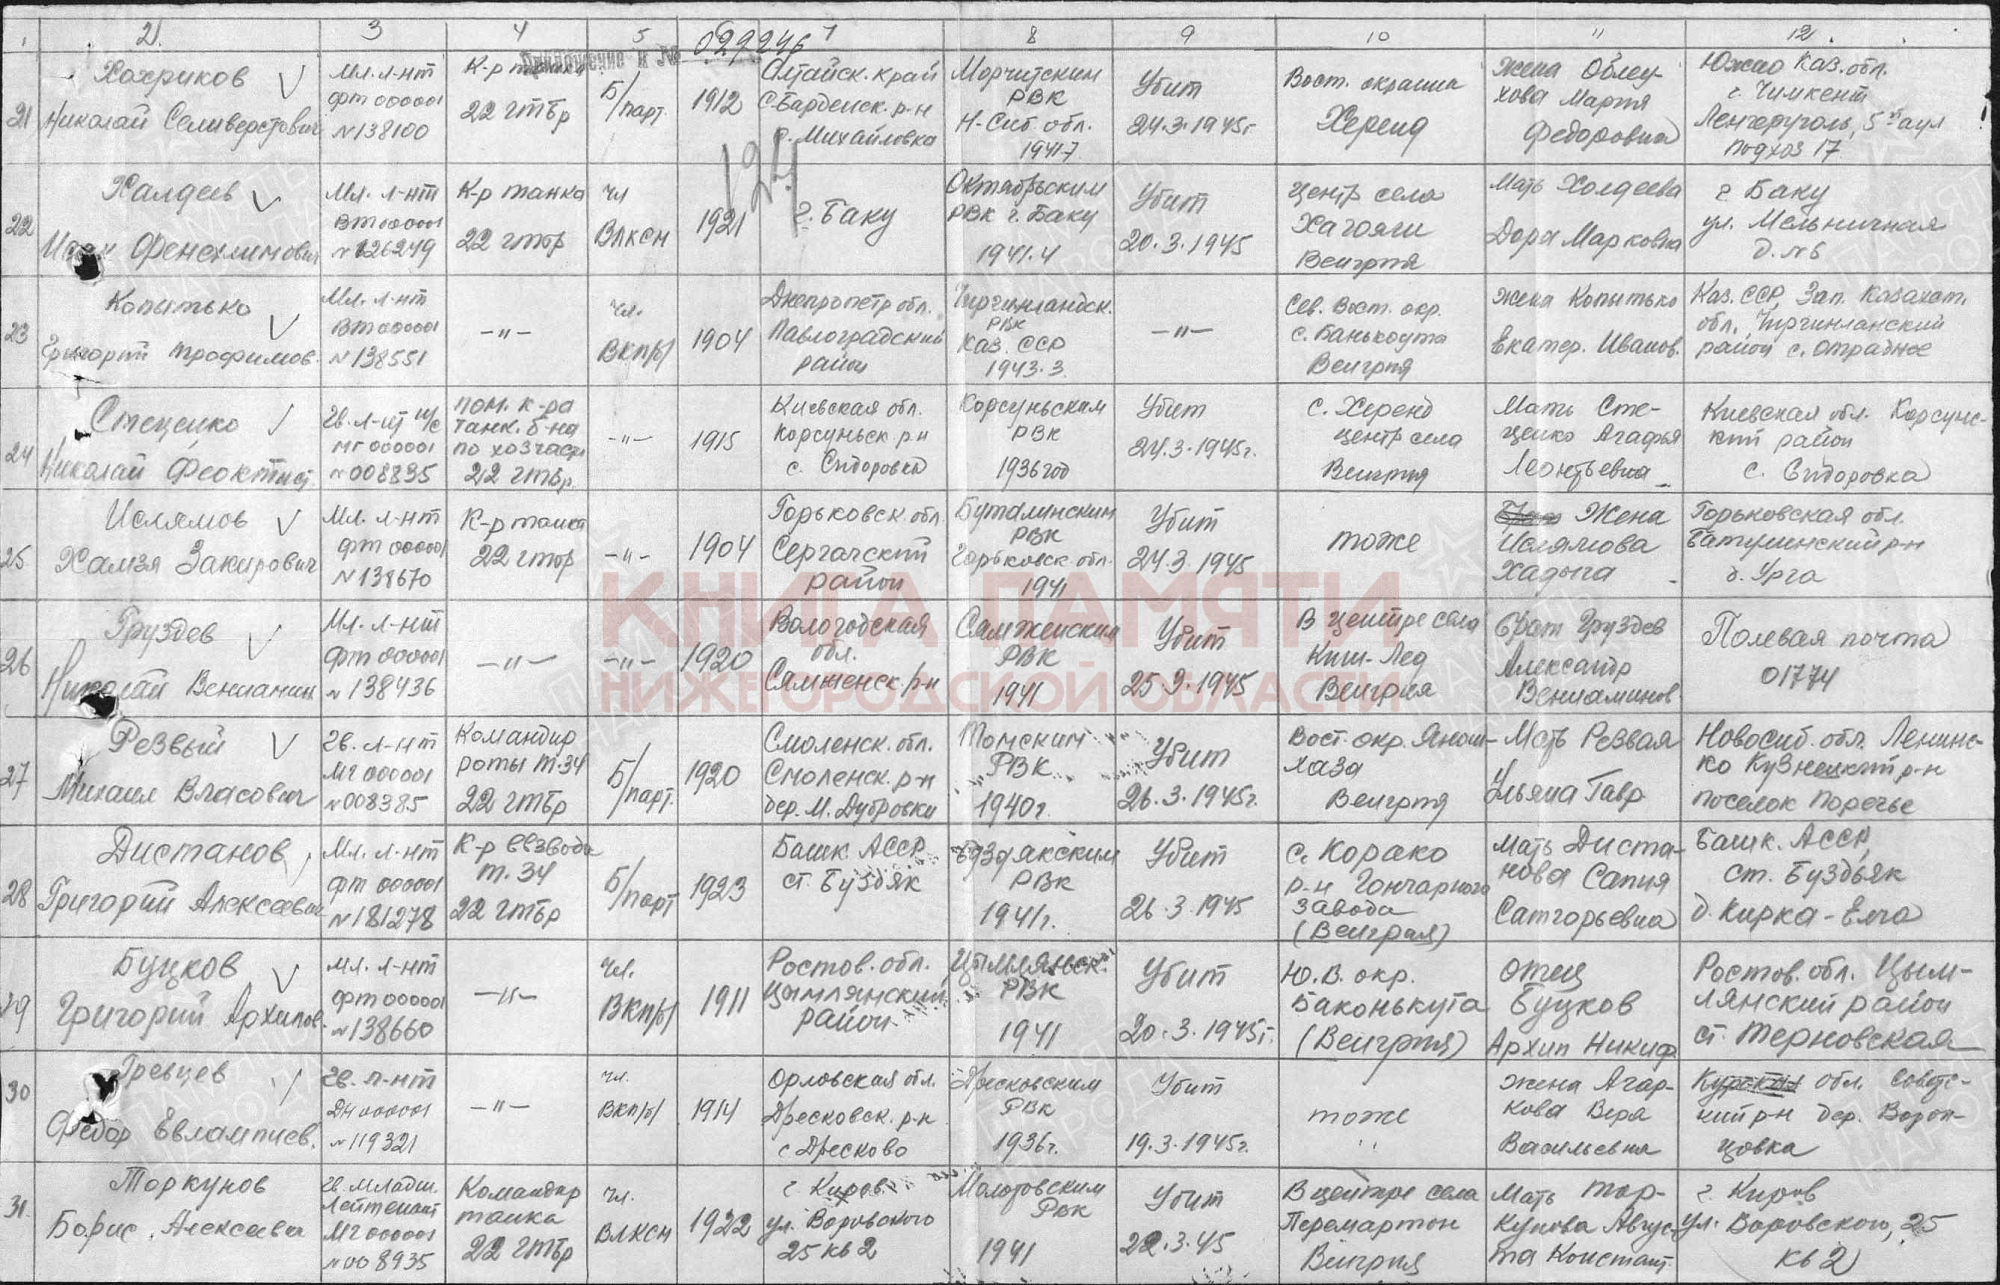 2 3 4 5 7 8 9 10 11 12
029246
Приложение к №
194
21
Хохриков
Николай Селиверстович
Мл. л-нт
фт 000001
№138100
К-р танка
22 гтбр
Б/парт
1912
Алтайск. край
с. Михайловка
РВК
Н-Сиб обл.
Убит
24.3.1945г
Вост. окраина
Херенд
Жена Облеу-
хова Мария
Федоровна
Южно Каз. обл.
г. Чимкент
22
Халдеев
Мл. л-нт
ВТ 000001
№126249
К-р танка
22 гтбр
чл
ВЛКСМ
1921
г. Баку
Октябрьским
РВК г. Баку
1941.4
Убит
20.3.1945
центр села
Венгрия
Мать Холдеева
Дора Марковна
г Баку
ул. Мельничная
д. №6
23
Копытько
Григорий Трофимов.
Мл. л-нт
ВТ 000001
№138551
—"—
чл.
ВКП/б/
1904
Днепропетр обл.
Павлоградский
район
РВК
Каз. ССР
1943.3.
—"—
Сев. Вост. окр.
Венгрия
Жена Копытько
Екатер. Иванов.
Каз. ССР, Зап. Казахст.
район с. Отрадное
24
Стеценко
Николай Феоктист.
Гв. л-нт и/с
МГ 000001
№008835
пом. к-ра
танк. б-на
по хозчасти
22 гтбр.
—"—
1915
Киевская обл.
Корсуньск. р-н
с. Сидоровка
Корсуньским
РВК
1936 год
Убит
24.3.1945г.
с. Херенд
центр села
Венгрия
Мать Сте-
ценко Агафья
Леонтьевна
Киевская обл. Корсунс-
кий район
с. Сидоровка
25
Ислямов
Хамзя Закирович
Мл. л-нт
фт 000001
№138670
К-р танка
22 гтбр
—"—
1904
Горьковск. обл.
Сергачский
район
РВК
Горьковск. обл.
1941
Убит
24.3.1945
тоже
Жена
Ислямова
Горьковская обл.
д. Урга
26
Груздев
Николай Вениамин
Мл. л-нт
фт 000001
№138436
—"—
—"—
1920
Вологодская
обл.
Сямженск. р-н
Сямженским
РВК
1941
Убит
25.3.1945
В центре села
Киш-Лед
Венгрия
брат Груздев
Александр
Вениаминов.
Полевая почта
01774
27
Резвый
Михаил Власович
Гв. л-нт
МГ 000001
№008385
Командир
роты Т-34
22 гтбр
Б/парт.
1920
Смоленск. обл.
Смоленск. р-н
дер. М. Дубровки
Томским
РВК
1940г.
Убит
26.3.1945г.
Вост. окр. Янош-
хаза
Венгрия
Мать Резвая
Ульяна Гавр
Новосиб. обл. Ленинс-
ко Кузнецкий р-н
поселок Поречье
28
Дистанов
Григорий Алексеевич
Мл. л-нт
фт 000001
№181278
К-р взвода
Т-34
22 гтбр
Б/парт
1923
Башк АССР
ст. Буздяк
РВК
1941г.
Убит
26.3.1945
с. Корако
р-н Гончарного
завода
(Венгрия)
Мать Диста-
нова Сапия
Башк. АССР,
ст. Буздьяк
29
Буцков
Григорий Архипов.
Мл. л-нт
фт 000001
№138660
—"—
Чл.
ВКП/б/
1911
Ростов. обл.
Цымлянский
район
Цымлянск.
РВК
1941
Убит
20.3.1945г.
Ю.В. окр.
Баконькута
(Венгрия)
отец
Буцков
Архип Никиф.
Ростов. обл. Цым-
лянский район
ст. Терновская
30
Гревцев
Федор Евлампиев.
Гв. л-нт
ДН 000001
№119321
—"—
чл.
ВКП/б/
1914
Орловская обл.
Дресковск. р-н
с Дресково
Дресковским
РВК
1936г.
Убит
19.3.1945г.
тоже
жена Агар-
кова Вера
Васильевна
обл. Советс-
кий р-н дер. Ворон-
цовка
31.
Торкунов
Борис Алексеевич
Гв. младш.
лейтенант
МГ 000001
№008935
Командир
танка
22 гтбр
чл.
ВЛКСМ
1922
г Киров
ул. Воровского
25 кв 2
Молотовским
РВК
1941
Убит
22.3.45
В центре села
Перемартон
Венгрия
Мать Тор-
кунова Авгус-
та Констант.
г. Киров
ул. Воровского, 25
кв 2
КНИГА ПАМЯТИ
НИЖЕГОРОДСКОЙ ОБЛАСТИ